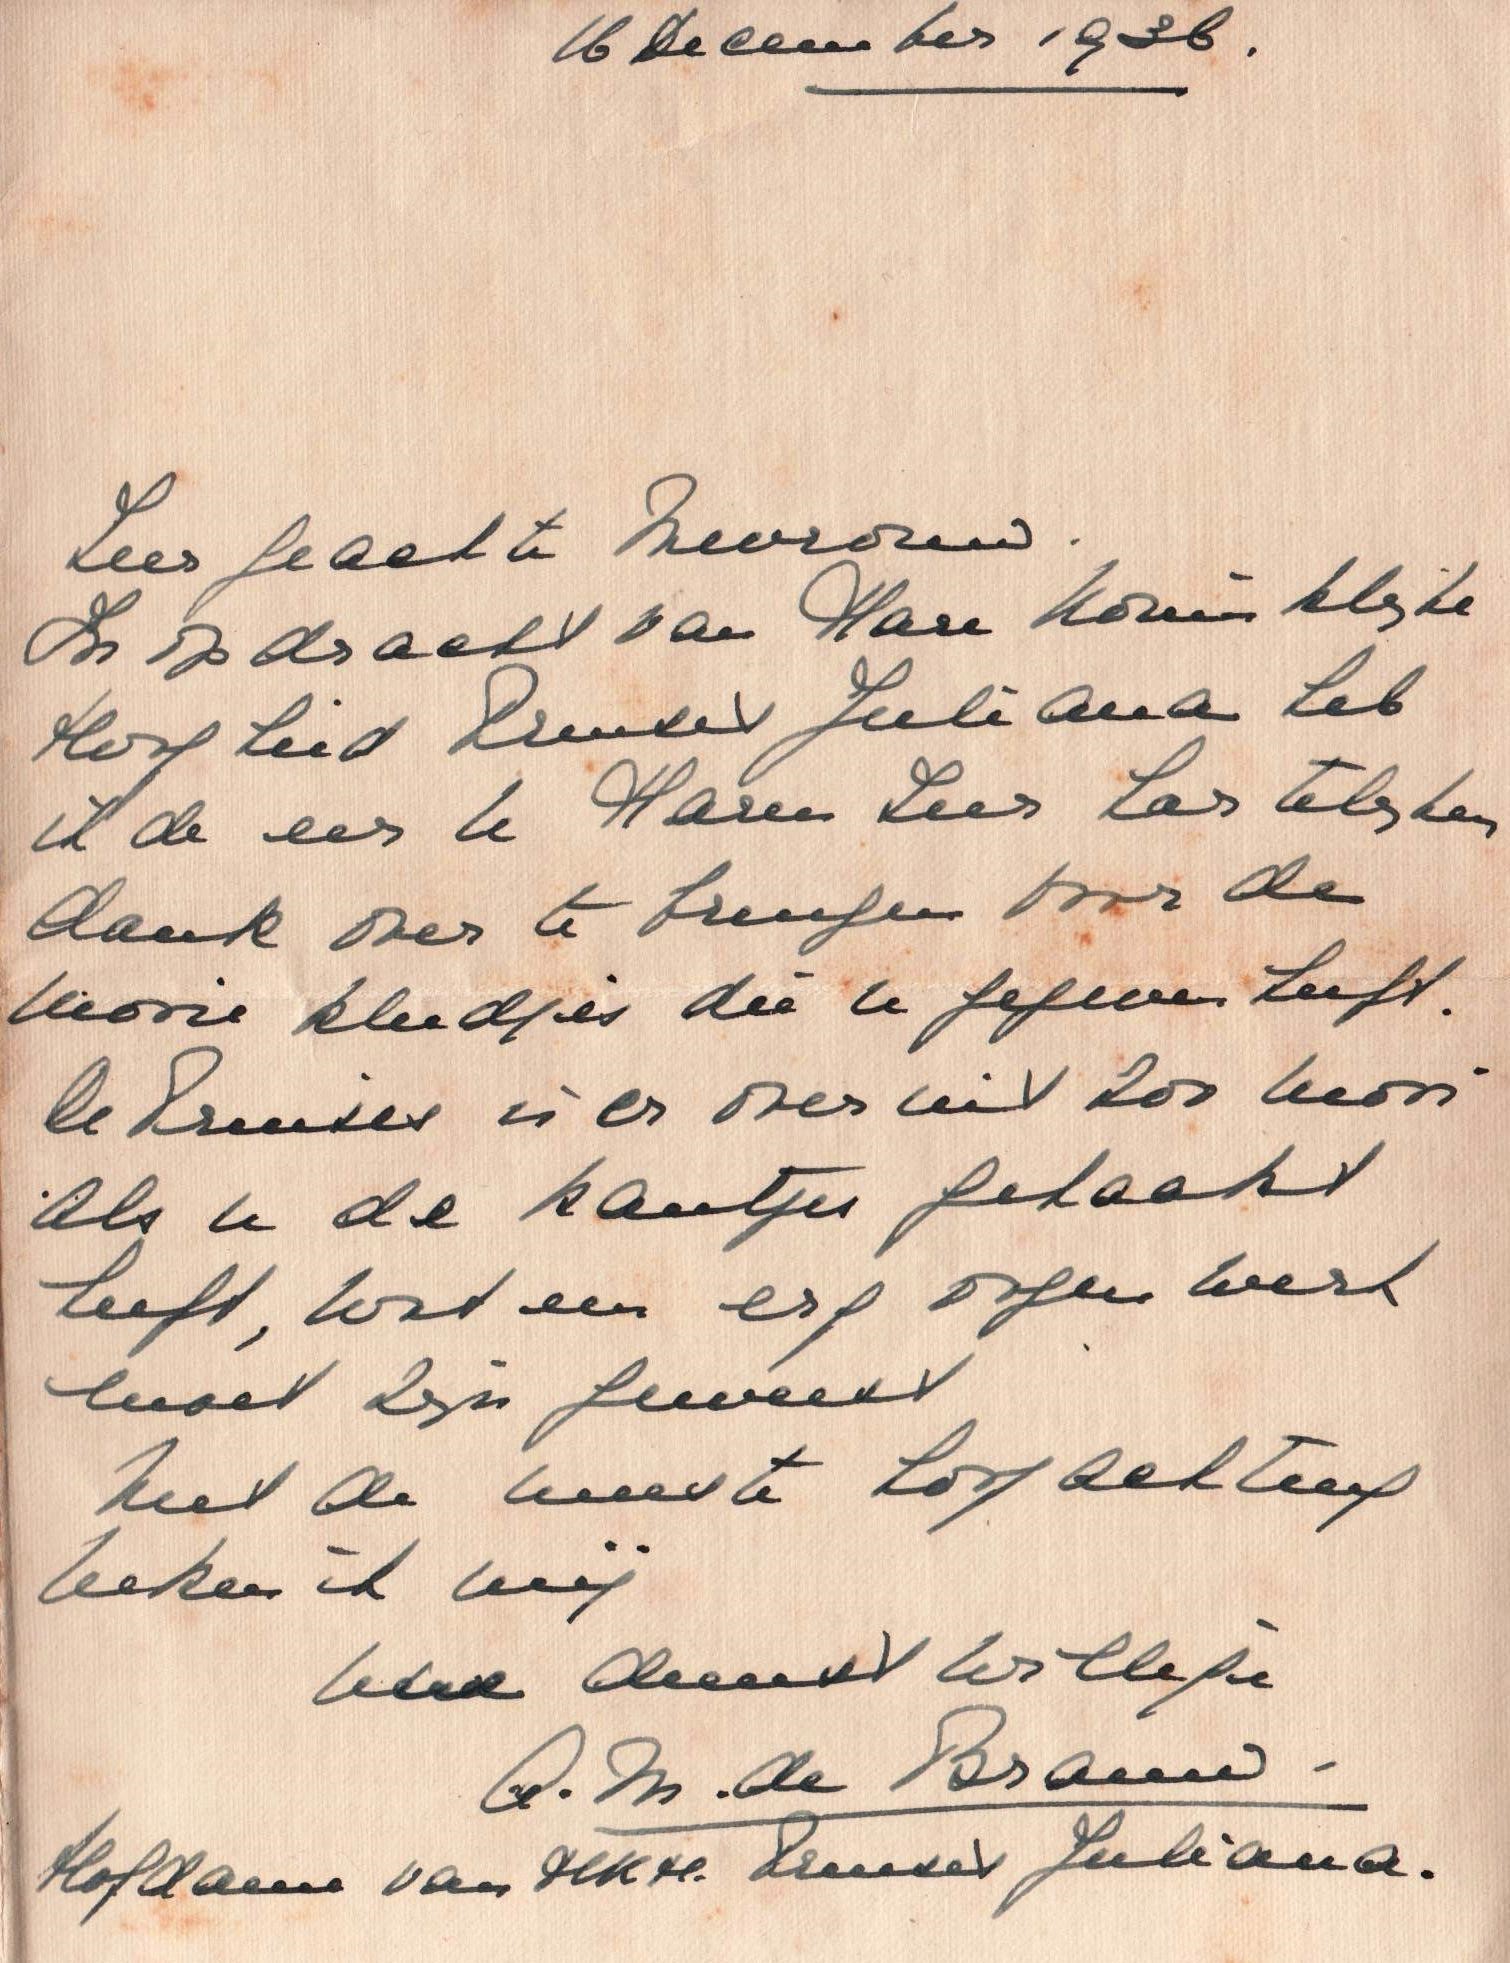 16 December 1936.
Zeer geachte Mevrouw.
In opdracht van Hare Koninklijke
Hoogheid Prinses Juliana heb
ik de eer u Haren zeer hartelijken
dank over te brengen voor de
mooie kleedjes die u gegeven heeft.
De Prinses is er over uit zoo mooi
als u de kantjes gehaakt
heeft, wat een erg ogen werk
moet zijn geweest
Met de meeste hoogachting
teken ik mij
uwe dienstwillige
C. M. de Brauw.
Hofdame van H.K.H. Prinses Juliana.